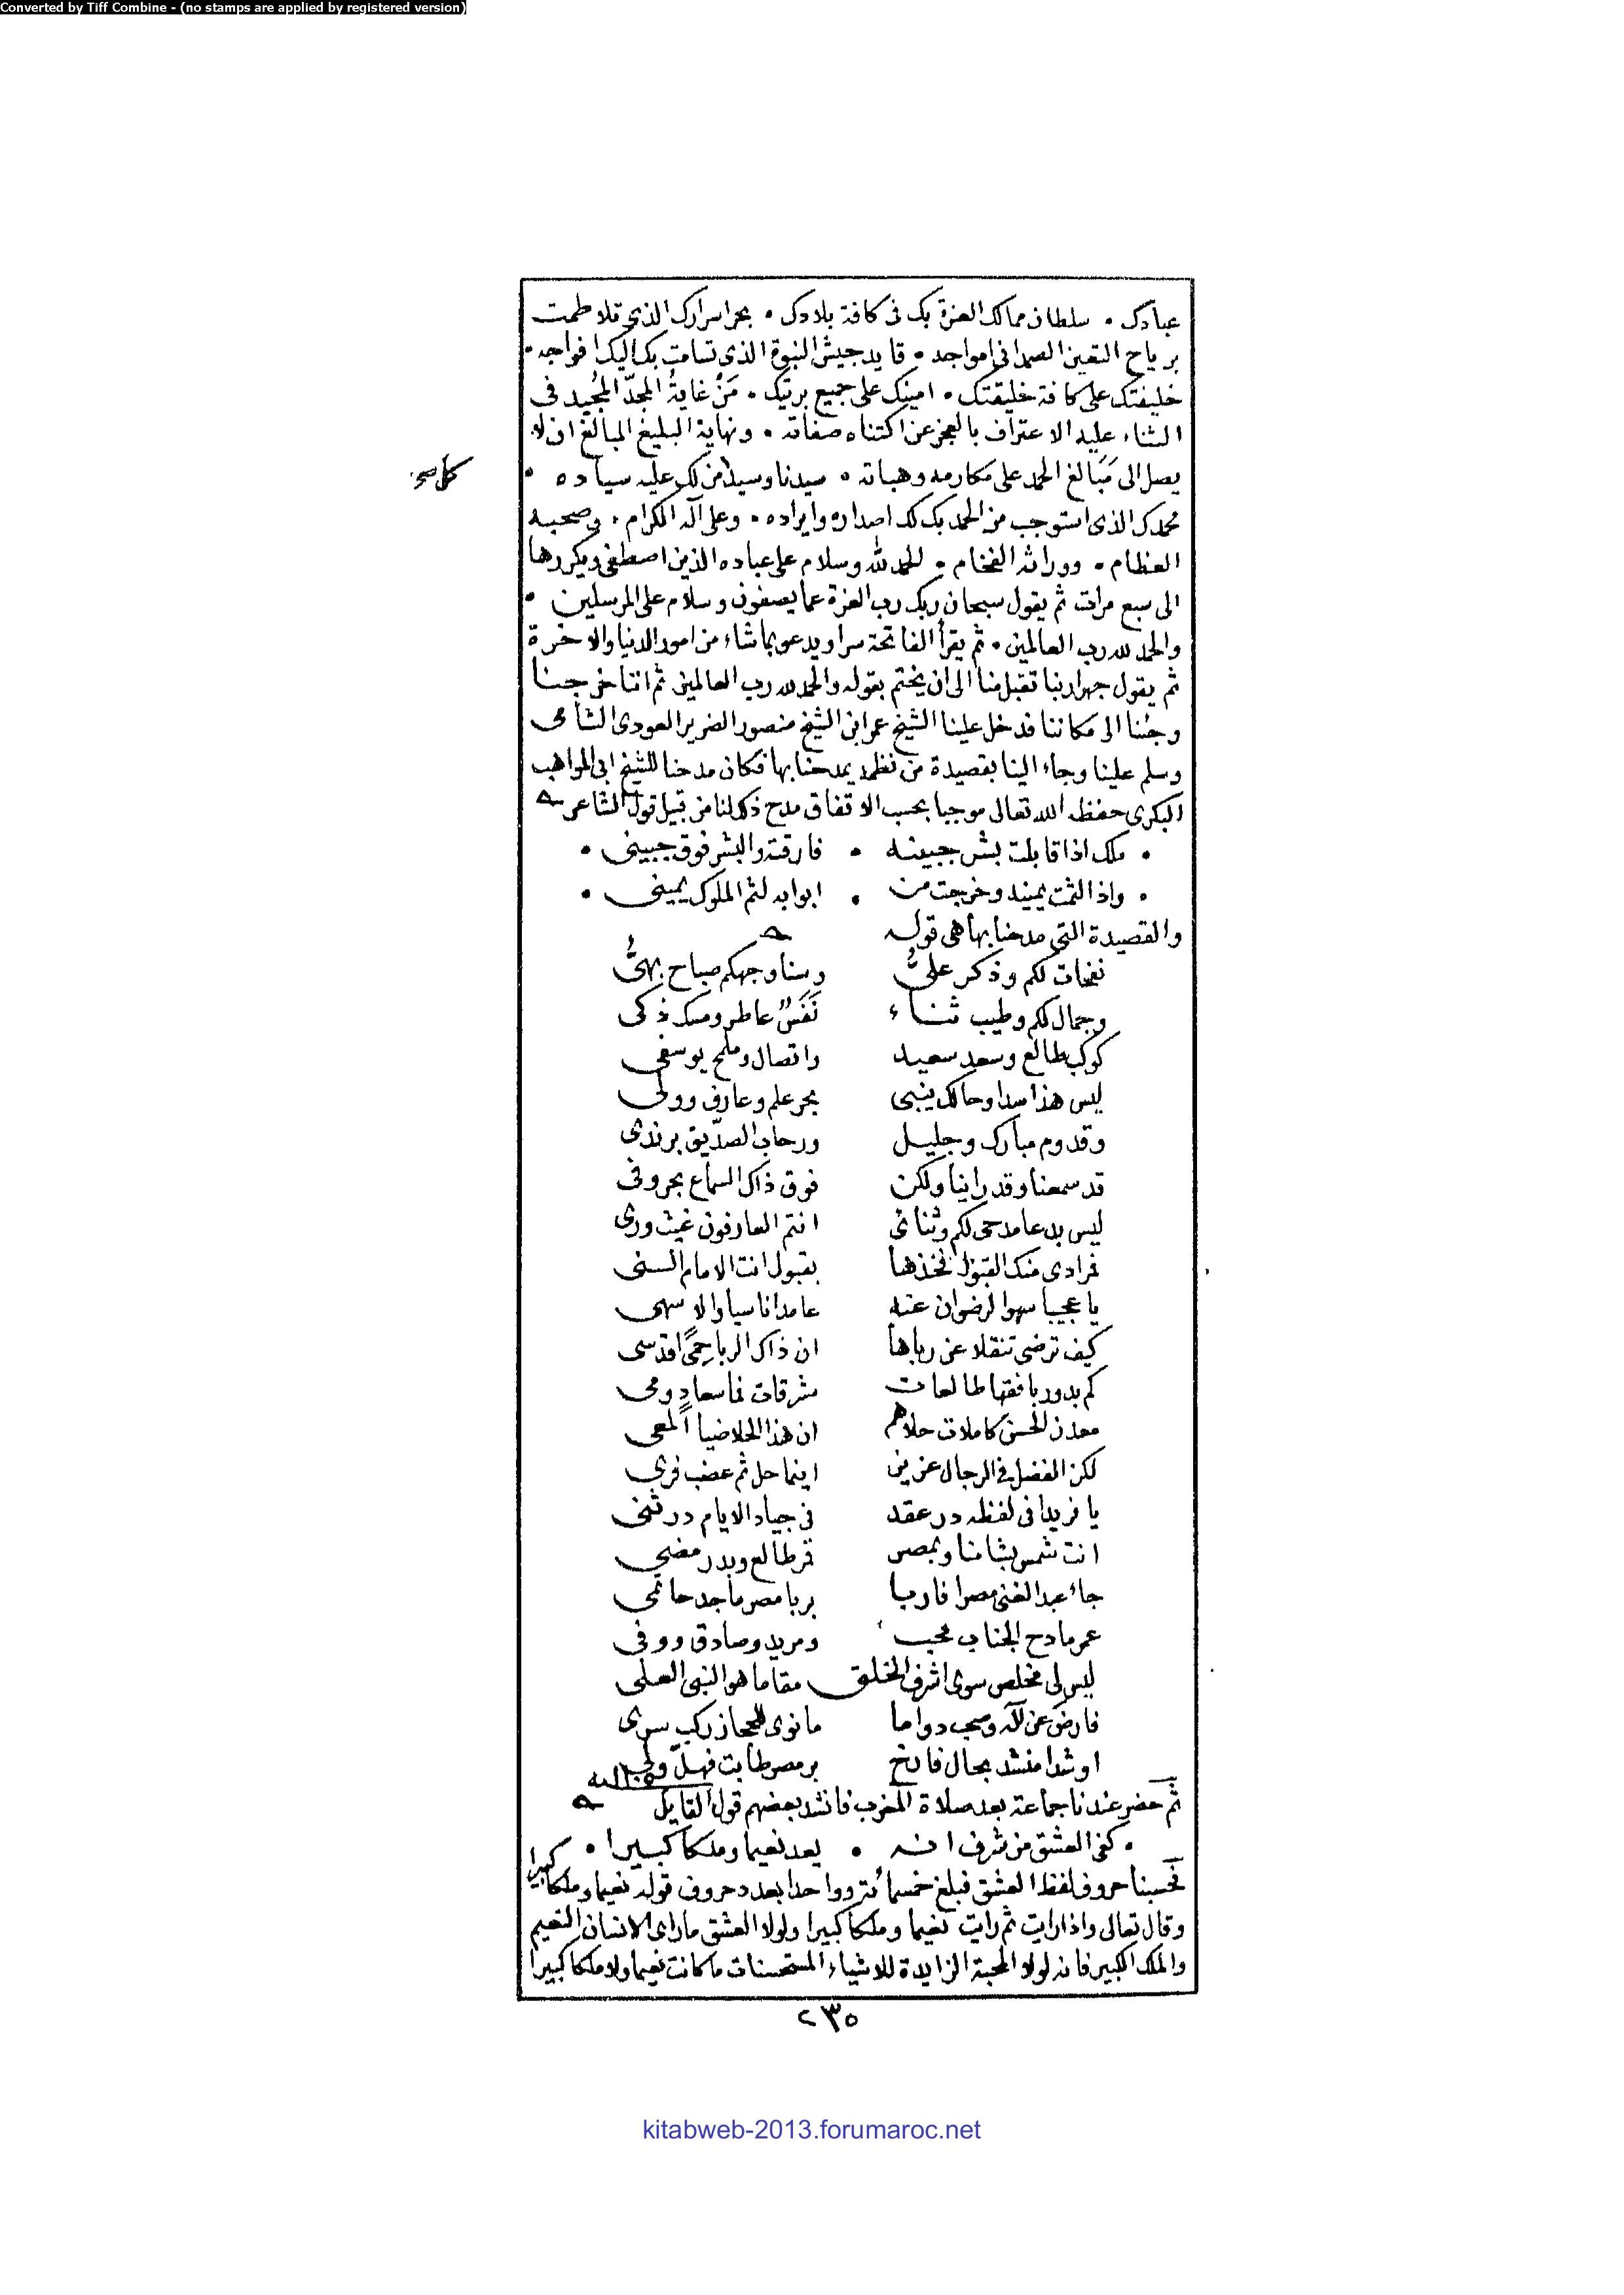 Converted by Tiff Combine - (no stamps are applied by registered version)
عبادك • سلطان ممالك العزة بك فى كافة بلادك • بحر اسرارك الذى تلاطمت
برياح التعين الصمدانى امواجه • قايد جيش النبوة الذى تسامت بك اليك افواجه •
خليفتك على كافة خليقتك • امينك على جميع بريتك • مَنْ غايةُ المجدّ المجُيد فى
الثناء عليه الاعتراف بالعجز عن اكتناه صفاته • ونهاية البليغ المبالغ ان لا
يصل الى مَبَالغ الحمد على مكارمه وهباته • سيدنا وسيد من لك عليه سياده •
كل صح
محمدك الذى استوجب من الحمد بك لك اصداره وايراده • وعلى آله الكرام • وصحبه
العظام • ووراثه الفخام • الحمد لله وسلام على عباده الذين اصطفى ويكررها
الى سبع مرات ثم يقول سبحان ربك رب العزة عما يصفون وسلام على المرسلين •
والحمد لله رب العالمين • ثم يقرأ الفاتحة سرا ويدعو بما شاء من امور الدنيا والاخرة
ثم يقول جهرا ربنا تقبل منا الى ان يختم بقوله والحمد لله رب العالمين ثم اننا خرجنا
وجئنا الى مكاننا فدخل علينا الشيخ عمر ابن الشيخ منصور الضرير العودى الشامى
وسلم علينا وجاء الينا بقصيدة من نظمه يمدحنا بها فكان مدحنا للشيخ ابى المواهب
البكرى حفظه الله تعالى موجبا بحسب الاتفاق مدح ذكر لنا من قبيل قول الشاعر
• ملك اذا قابلت بشر جبينه • فارقته والبشر فوق جبينى •
• واذا لثمت يمينه وخرجت من • ابوابه لثم الملوك يمينى •
والقصيدة التى مدحنا بها هى قوله
نفحات لكم وذكر علىُّ وسنا وجهكم صباح بهىُّ
وجمال لكم وطيب ثناء نَفَسٌ عاطر ومسك ذكى
كوكب طالع وسعد سعيد واتصال وملمح يوسفى
ليس هذا سدا وحالك ينبى بحر علم وعارف وولى
وقدوم مبارك وجليل ورحاب الصدّيق برندى
قد سمعنا وقد راينا ولكن فوق ذاك السماع بحر وفى
ليس بدعا مدحى لكم وثنائى انتم العارفون غيث ورى
فمرادى منك القبول فخذها بقبول انت الامام السنى
يا عجيبا سهوا لرضوان عنه عامدا ناسيا والا سهى
كيف ترضى تنقلا عن رباها ان ذاك الربا حِمًى اقدسى
كم بدور بافقها طالعات مشرقات فما سعاد ومى
معدن الحسن كاملات حلاهم ان هذا الحلا ضيا ألمعى
لكن الفضل فى الرجال عزيز اينما حل ثم عضب فرى
يا فريدا فى لفظه در عقد فى جياد الايام در ثمنى
انت شمس بشامنا وبمصر قمر طالع وبدر مضى
جاء عبد الغنى مصرا فاربا بربا مصر ماجد حاتمى
عمر مادح الجناب محب ومريد وصادق ووفى
ليس لى مخلص سوى اشرف الخلق مقاما هو النبى العلى
فارض عن آله وصحب دواما ما نوى للحجاز ركب سرى
او شدا منشد بحال فارخ بر مصر طابت فهلّ ولى
ثم حضر عندنا جماعة بعد صلاة المغرب فانشد بعضهم قول القايل
• كفى العشق من شرف انه • يعد نعيما وملكا كبيرا •
فحسبنا حروف لفظ العشق فبلغ خمسمائة وواحدا بعدد حروف قوله نعيما وملكا كبيرا
وقال تعالى واذا رايت ثم رايت نعيما وملكا كبيرا ولولا العشق ما راى الانسان النعيم
والملك الكبير فانه لولا المحبة الزايدة للاشياء المستحسنات ما كانت نعيما ولا ملكا كبيرا
٢٣٥
kitabweb-2013.forumaroc.net